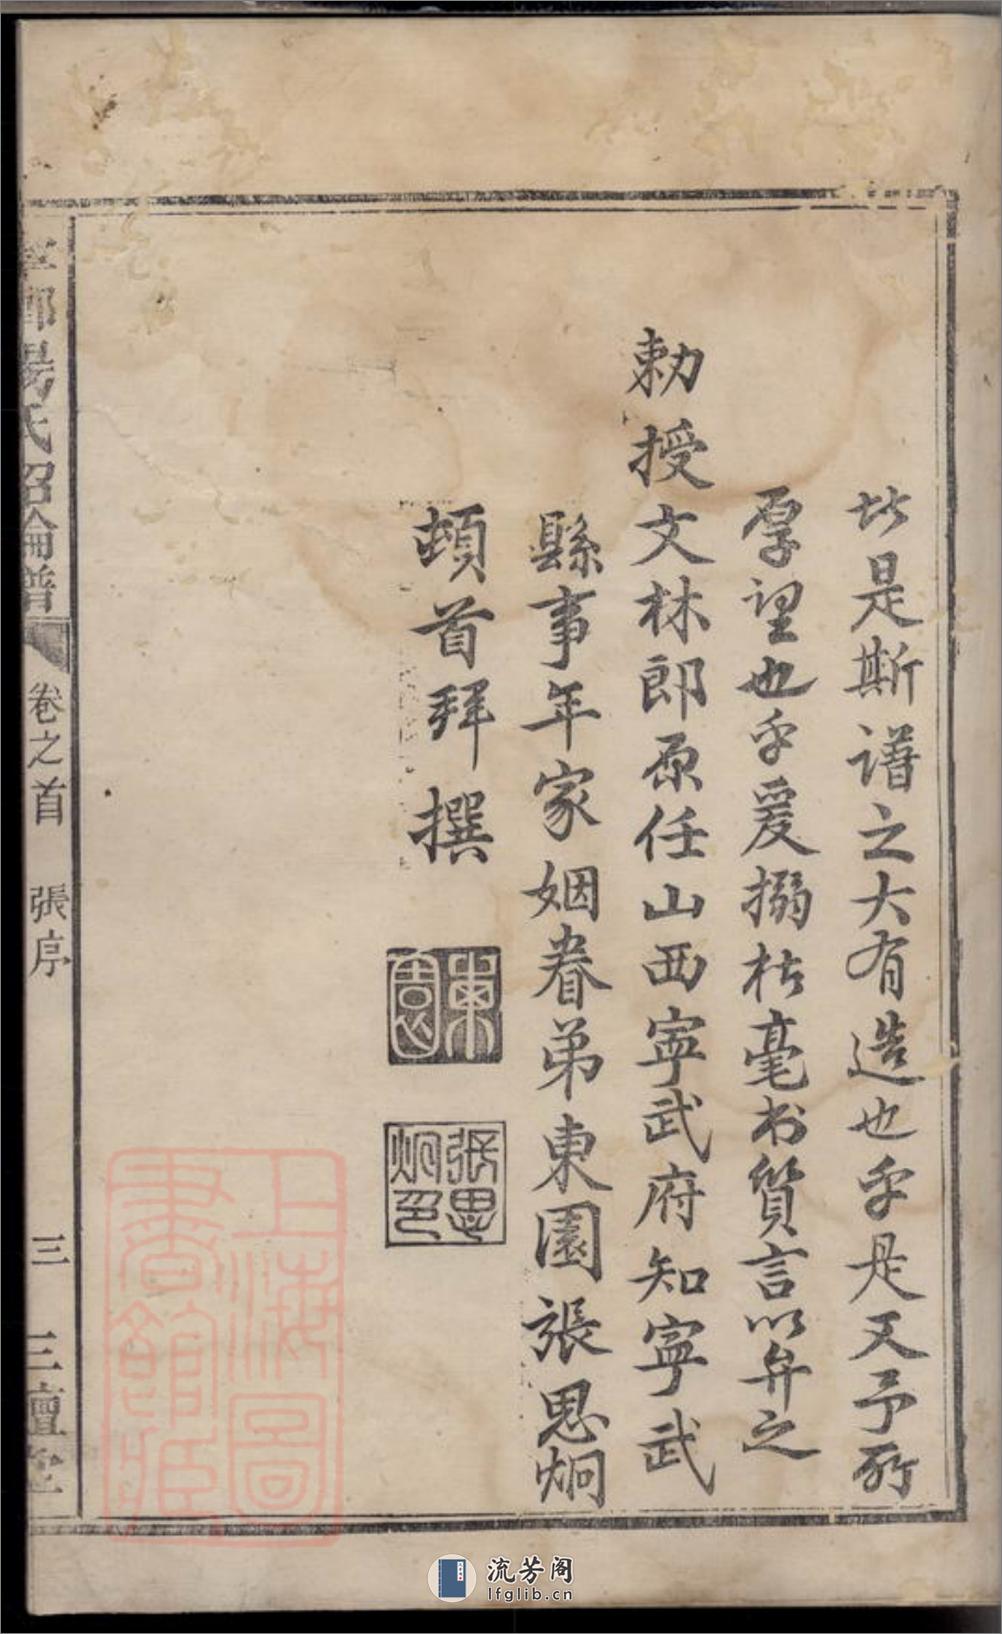 皆是斯譜之大有造也乎是又予所
厚望也乎爰搦枯毫書質言以弁之
勅授文林郎原任山西寧武府知寧武
縣事年家姻眷弟東園張思炯
頓首拜撰
東園
張思炯印
楊氏紹倫譜
卷之首
張序
三
三鱣堂
上海圖書館藏
流芳阁
lfglib.cn